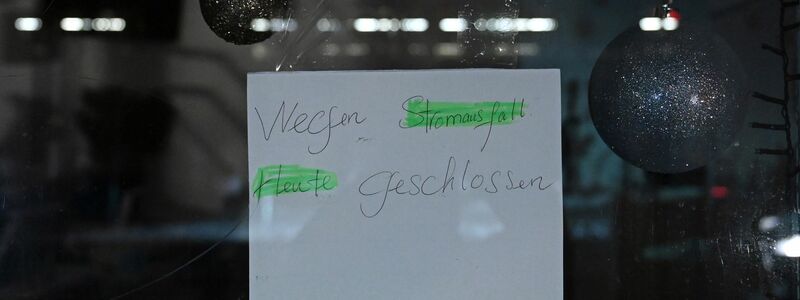 Wegen Stromausfall
Heute geschlossen